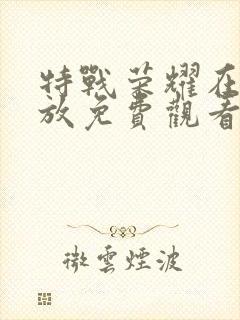 特戰荣耀在
放免費觀看
微雲煙波